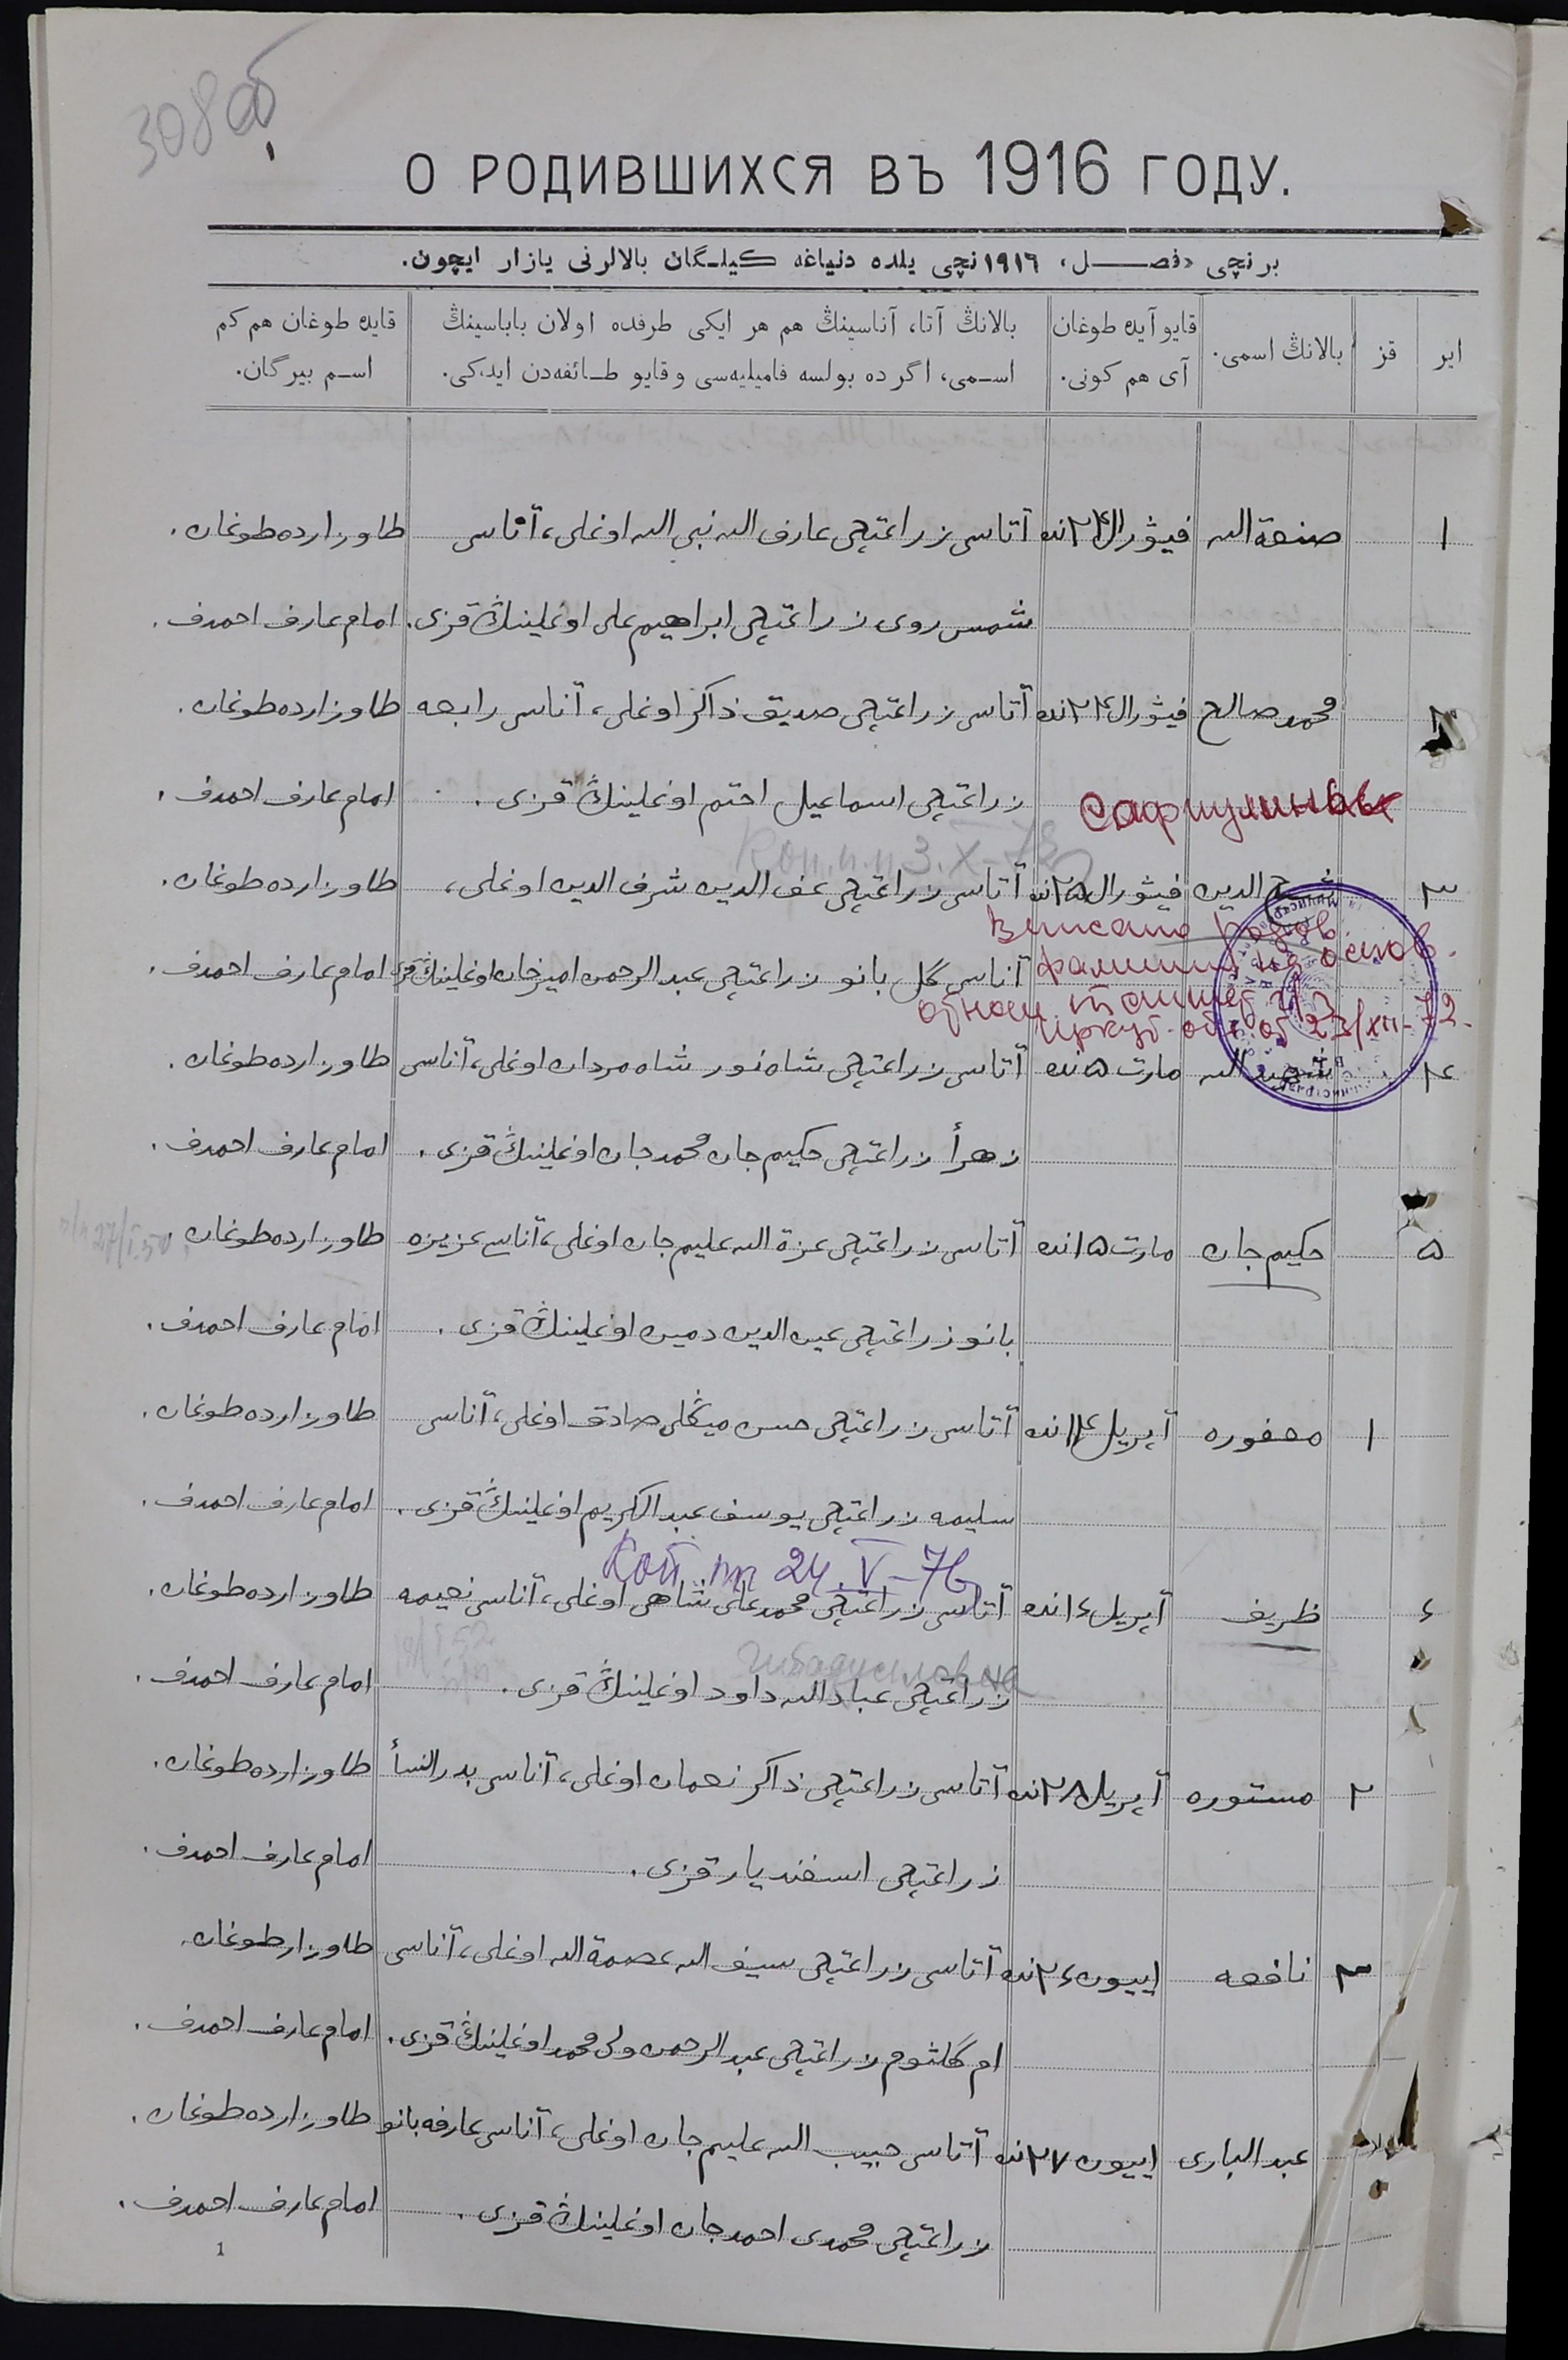 308 об
О РОДИВШИХСЯ ВЪ 1916 ГОДУ.
برنچی «فصل» ١٩١٦ نچی یلده دنیاغه کیلگان بالالرنی یازار ایچون.
ایر
قز
بالانڭ اسمی.
قایو آیده طوغان آی هم کونی.
بالانڭ آتا، آناسینڭ هم هر ایکی طرفده اولان باباسینڭ
اسمی، اگر ده بولسه فامیلیه‌سی و قایو طائفه‌دن ایدکی.
قایده طوغان هم کم
اسم بیرگان.
١ صنعة الله فیۋرال ٢٤ نده آتاسی زراعتچی عارف الله نبی الله اوغلی، آناسی طاوزارده طوغان.
شمس روی زراعتچی ابراهیم علی اوغلینڭ قزی. امام عارف احمدف.
٢ محمد صالح فیۋرال ٢٤ نده آتاسی زراعتچی صدیق ذاکر اوغلی، آناسی رابعه طاوزارده طوغان.
زراعتچی اسماعیل احتم اوغلینڭ قزی. امام عارف احمدف.
Сафиулины
Коп. п.п 3.X-73
٣ الدین فیۋرال ٢٥ نده آتاسی زراعتچی عف الدین شرف الدین اوغلی، طاوزارده طوغان.
Вписано
фамилия на основ.
آناسی گل بانو زراعتچی عبدالرحمن امیرخان اوغلینڭ قزی امام عارف احمدف.
Иркут. обл. от 23/XII-72
٤ الله مارت ٥ نده آتاسی زراعتچی شاه نور شاه مردان اوغلی، آناسی طاوزارده طوغان.
زهرأ زراعتچی حکیم جان محمد جان اوغلینڭ قزی. امام عارف احمدف.
٥ حکیم جان مارت ١٥ نده آتاسی زراعتچی عزة الله علیم جان اوغلی، آناسی عزیزه طاوزارده طوغان.
27/I.50
بانو زراعتچی عین الدین دمین اوغلینڭ قزی. امام عارف احمدف.
١ مغفوره آپریل ١٤ نده آتاسی زراعتچی حسن میڭلی صادق اوغلی، آناسی طاوزارده طوغان.
سلیمه زراعتچی یوسف عبدالکریم اوغلینڭ قزی. امام عارف احمدف.
Коп. пп 24.V-76
٤ ظریف آپریل ١٤ نده آتاسی زراعتچی محمد علی شاهی اوغلی، آناسی نعیمه طاوزارده طوغان.
زراعتچی عبادالله داود اوغلینڭ قزی. امام عارف احمدف.
٢ مستوره آپریل ٢٨ نده آتاسی زراعتچی ذاکر نعمان اوغلی، آناسی بدر النسأ طاوزارده طوغان.
زراعتچی اسفندیار قزی. امام عارف احمدف.
٣ نافعه اییون ٢٤ نده آتاسی زراعتچی سیف الله عصمة الله اوغلی، آناسی طاوزار طوغان.
ام گلثوم زراعتچی عبدالرحمن ولی محمد اوغلینڭ قزی. امام عارف احمدف.
عبدالباری اییون ٢٧ نده آتاسی حبیب الله علیم جان اوغلی، آناسی عارفه بانو طاوزارده طوغان.
زراعتچی محمدی احمد جان اوغلینڭ قزی. امام عارف احمدف.
1